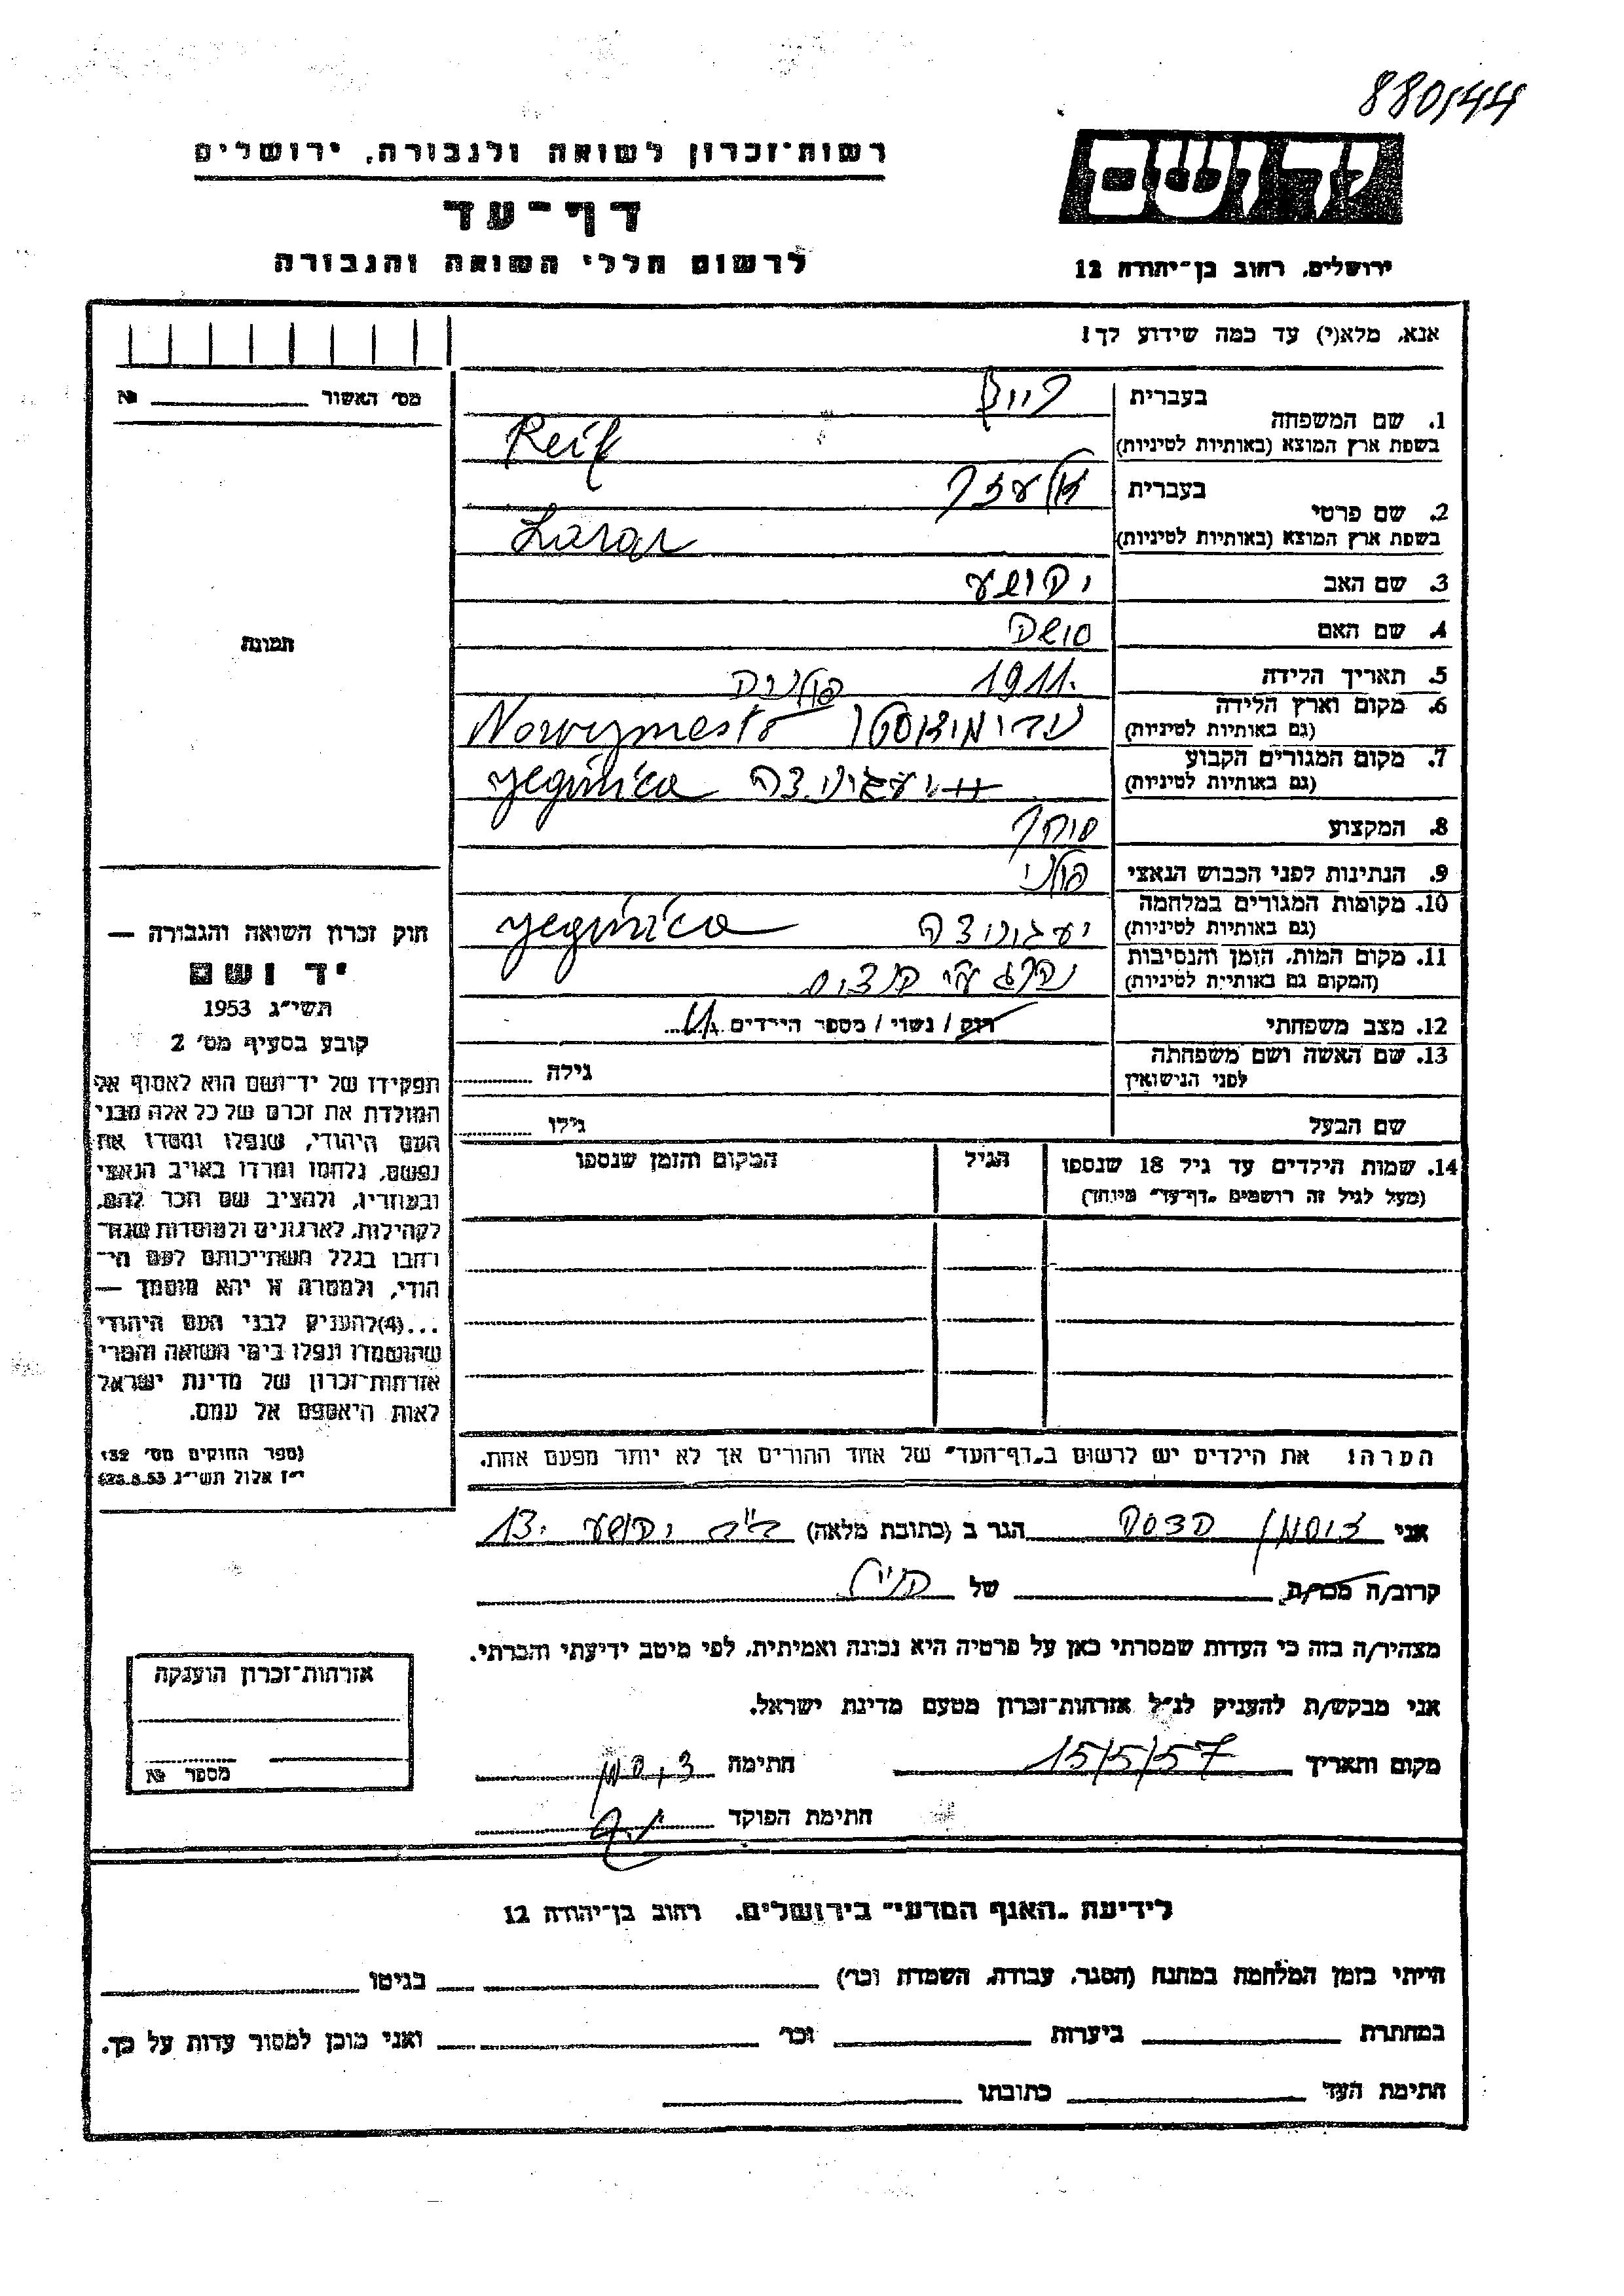 880/44
רשות־זכרון לשואה ולגבורה, ירושלים
דף־עד
לרשום חללי השואה והגבורה
יד ושם
ירושלים, רחוב בן־יהודה 12
אנא, מלא(י) עד כמה שידוע לך!
מס׳ האשור №
1. שם המשפחה
בעברית רייף
בשפת ארץ המוצא (באותיות לטיניות) Reif
2. שם פרטי
בעברית אלעזר
בשפת ארץ המוצא (באותיות לטיניות) Lazar
3. שם האב יהושע
4. שם האם
5. תאריך הלידה 1911.
6. מקום וארץ הלידה
(גם באותיות לטיניות) Nowymesto פולניה
7. מקום המגורים הקבוע
(גם באותיות לטיניות) יעגיניצה Yeginica
8. המקצוע סוחר
9. הנתינות לפני הכבוש הנאצי פולני
10. מקומות המגורים במלחמה
(גם באותיות לטיניות) יעגיניצה Yeginica
11. מקום המות, הזמן והנסיבות
(המקום גם באותיות לטיניות) נהרג ע״י הנצים
12. מצב משפחתי רוק / נשוי / מספר הילדים
13. שם האשה ושם משפחתה
לפני הנישואין גילה
שם הבעל גילו
14. שמות הילדים עד גיל 18 שנספו
(מעל לגיל זה רושמים „דף־עד״ מיוחד)
הגיל
המקום והזמן שנספו
הערה: את הילדים יש לרשום ב„דף־העד״ של אחד ההורים אך לא יותר מפעם אחת.
תמונה
חוק זכרון השואה והגבורה —
יד ושם
תשי״ג 1953
קובע בסעיף מס׳ 2
תפקידו של יד־ושם הוא לאסוף אל
המולדת את זכרם של כל אלה מבני
העם היהודי, שנפלו ומסרו את
נפשם, נלחמו ומרדו באויב הנאצי
ובעוזריו, ולהציב שם וזכר להם,
לקהילות, לארגונים ולמוסדות שנח־
רבו בגלל השתייכותם לעם הי־
הודי, ולמטרה זו יהא מוסמך —
...(4) להעניק לבני העם היהודי
שהושמדו ונפלו בימי השואה והמרי
אזרחות־זכרון של מדינת ישראל
לאות היאספם אל עמם.
(ספר החוקים מס׳ 132
י״ז אלול תשי״ג 28.8.53)
אני זוסמן הדסה הגר ב (כתובת מלאה) יהושע 13.
קרוב/ה מכר/ה של
מצהיר/ה בזה כי העדות שמסרתי כאן על פרטיה היא נכונה ואמיתית, לפי מיטב ידיעתי והכרתי.
אני מבקש/ת להעניק לנ״ל אזרחות־זכרון מטעם מדינת ישראל.
מקום ותאריך 15/5/57 חתימה
חתימת הפוקד
אזרחות־זכרון הוענקה
מספר №
לידיעת „האגף המדעי״ בירושלים, רחוב בן־יהודה 12
הייתי בזמן המלחמה במחנה (הסגר, עבודה, השמדה וכו׳) בגיטו
במחתרת ביערות וכו׳ ואני מוכן למסור עדות על כך.
חתימת העד כתובתו